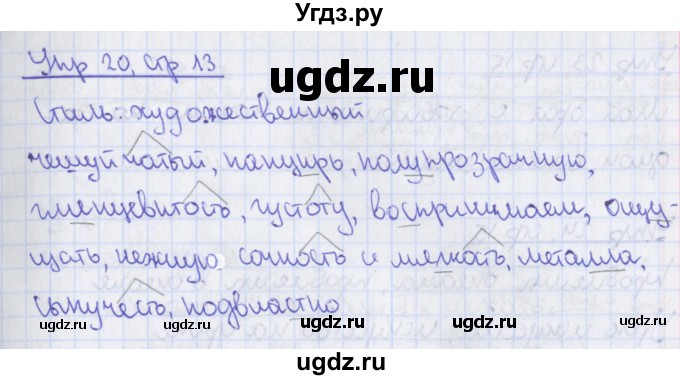 Угдз.ру
Упр 20, стр 13
ugdz.ru
Стиль: художественный
чешуйчатый, панцирь, полупрозрачную,
глянцевитость, густоту, воспринимаем, ощу-
щать, нежную сочность и мягкость, металла,
сыпучесть, подвластно
ugdz.ru ugdz.ru ugdz.ru
ugdz.ru